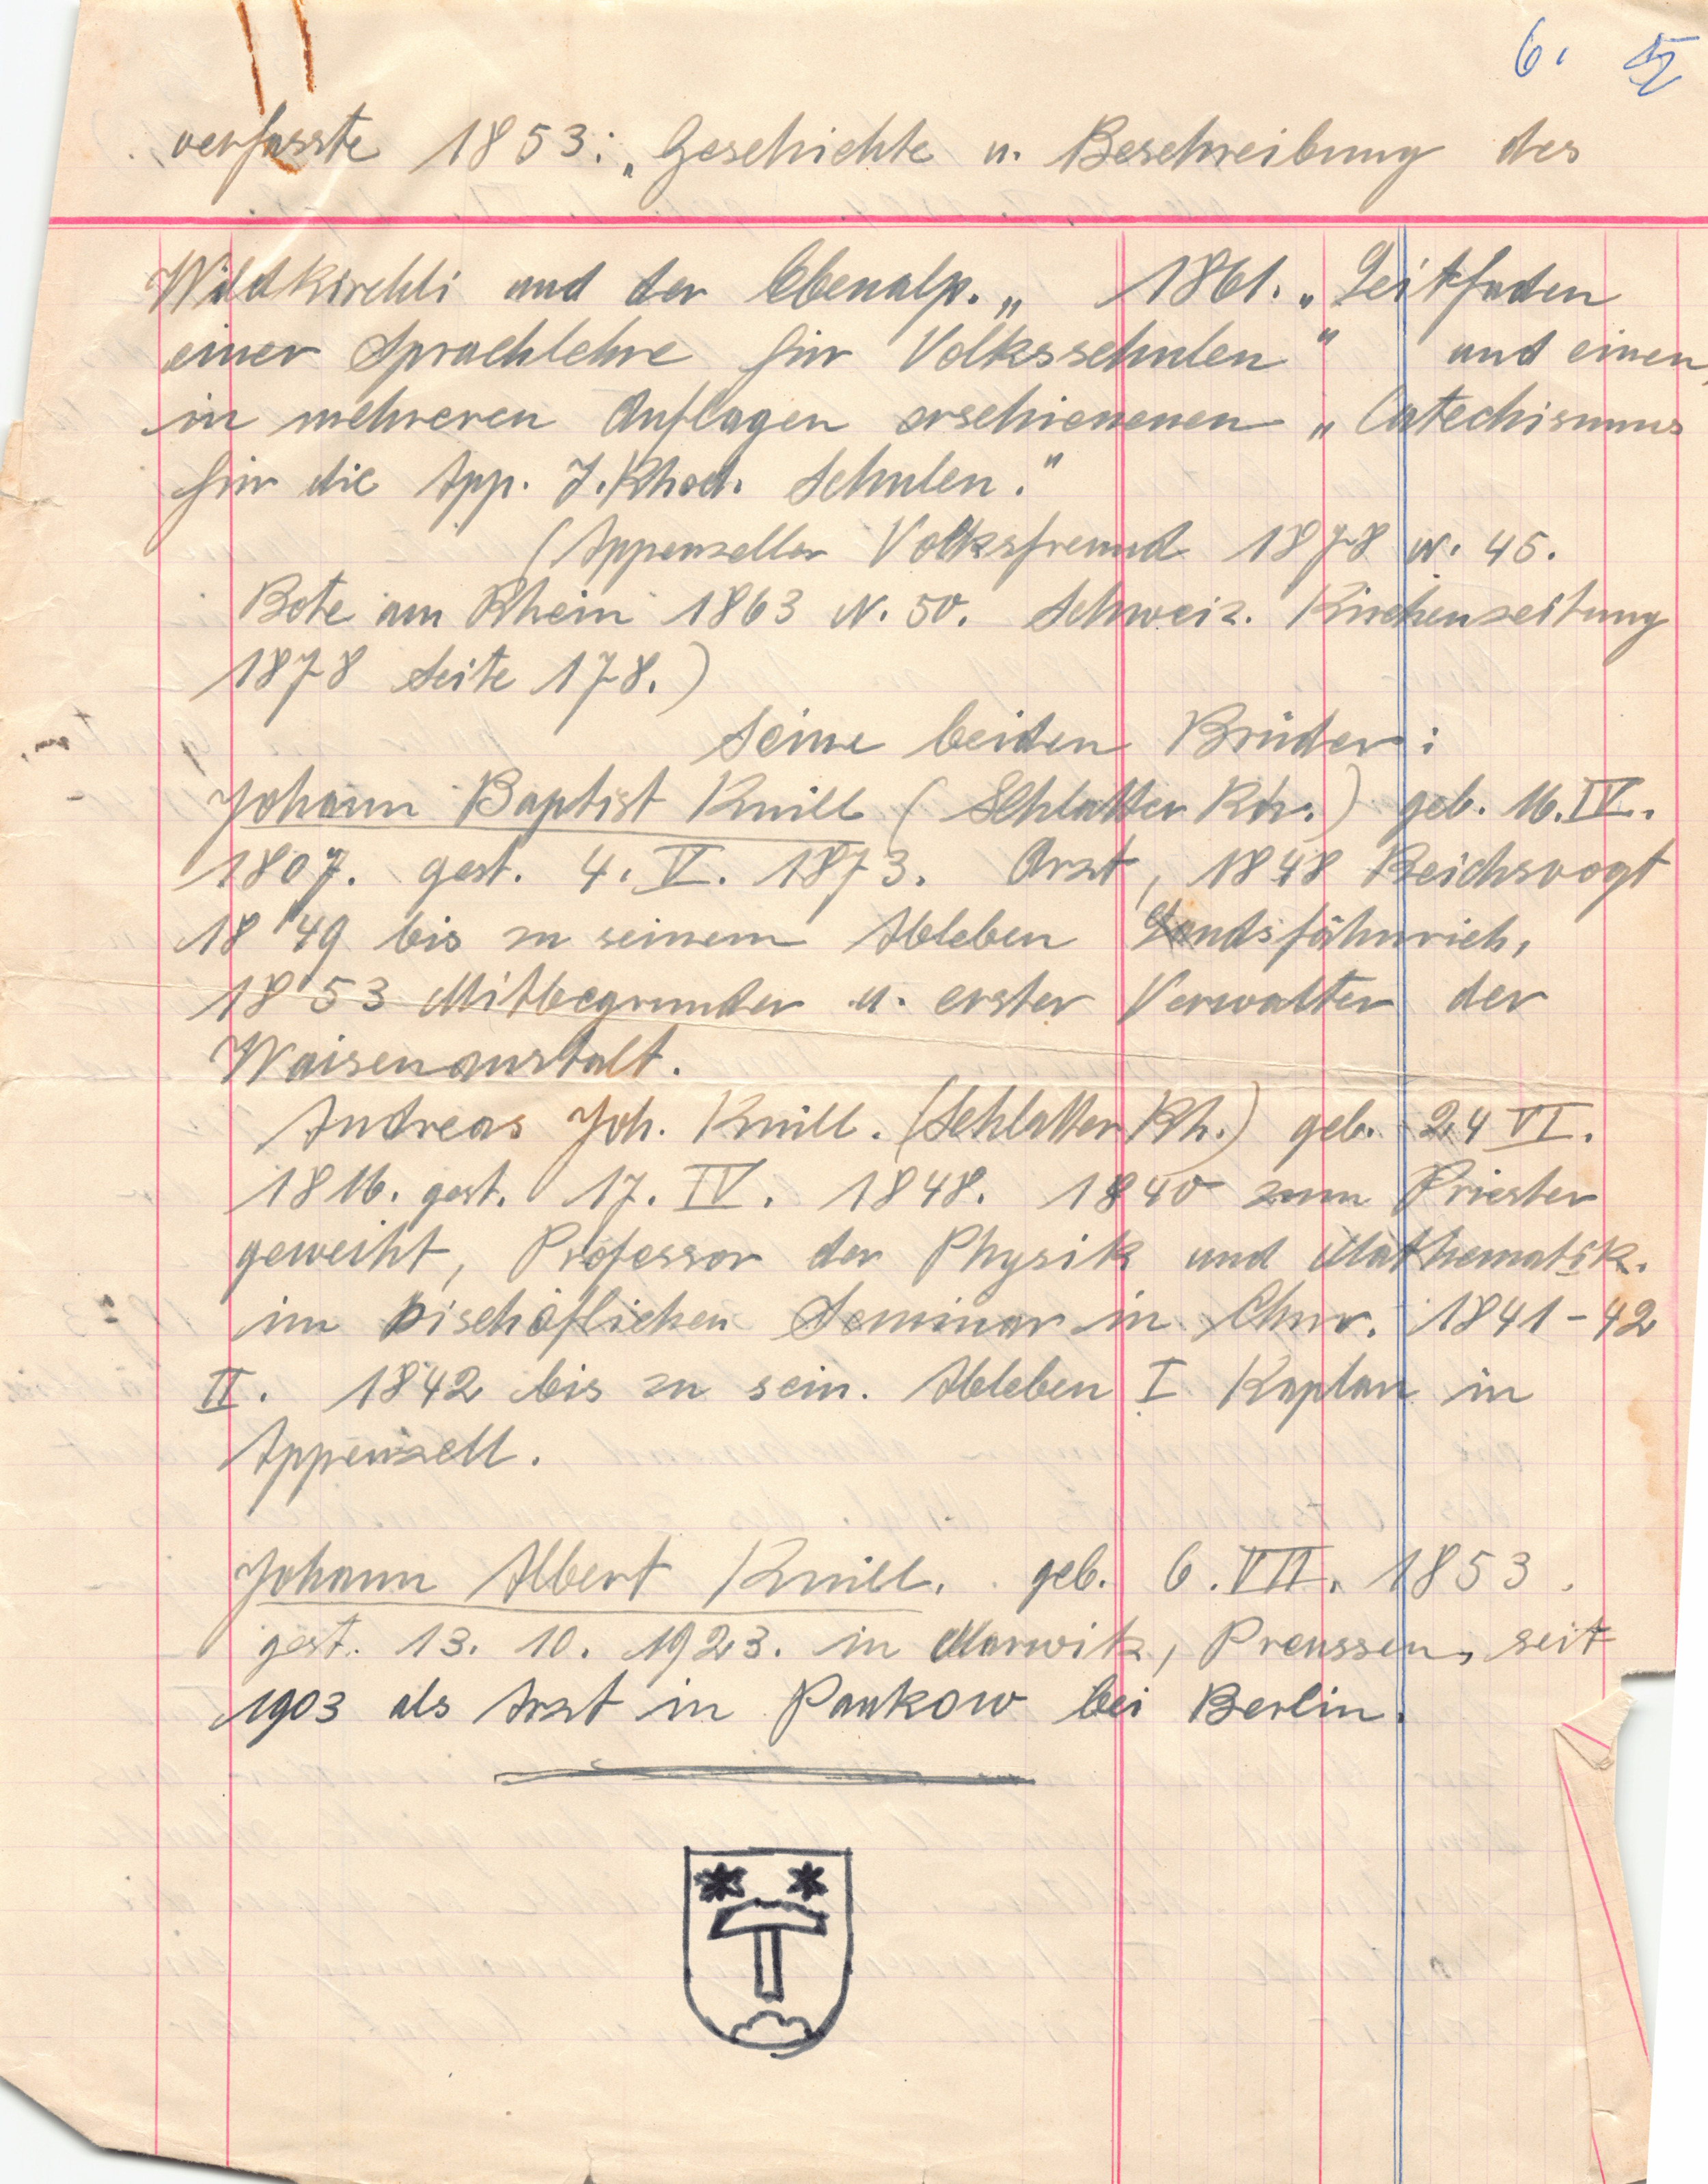 6.
verfasste 1853: „Geschichte u. Beschreibung des
Wildkirchli und der Ebenalp.„ 1861. „Leitfaden
einer Sprachlehre für Volksschulen" und einen
in mehreren Auflagen erschienenen „Catechismus
für die App. J.Rhod. Schulen."
(Appenzeller Volksfreund 1878 N. 45.
Bote am Rhein 1863 N. 50. Schweiz. Kirchenzeitung
1878 Seite 178.)
Seine beiden Brüder:
Johann Baptist Knill (Schlatter Rh.) geb. 16. IV.
1807. gest. 4. V. 1873. Arzt, 1848 Reichsvogt
1849 bis zu seinem Ableben Landsfähnrich,
1853 Mitbegrunder u. erster Verwalter der
Waisenanstalt.
Andreas Joh. Knill. (Schlatter Rh.) geb. 24 VI.
1816. gest. 17. IV. 1848. 1840 zum Priester
geweiht, Professor der Physik und Mathematik.
im bischöflichen Seminar in Chur. 1841-42
II. 1842 bis zu sein. Ableben I Kaplan in
Appenzell.
Johann Albert Knill. geb. 6. VII. 1853.
gest. 13. 10. 1923. in Marwitz, Preussen, seit
1903 als Arzt in Pankow bei Berlin.